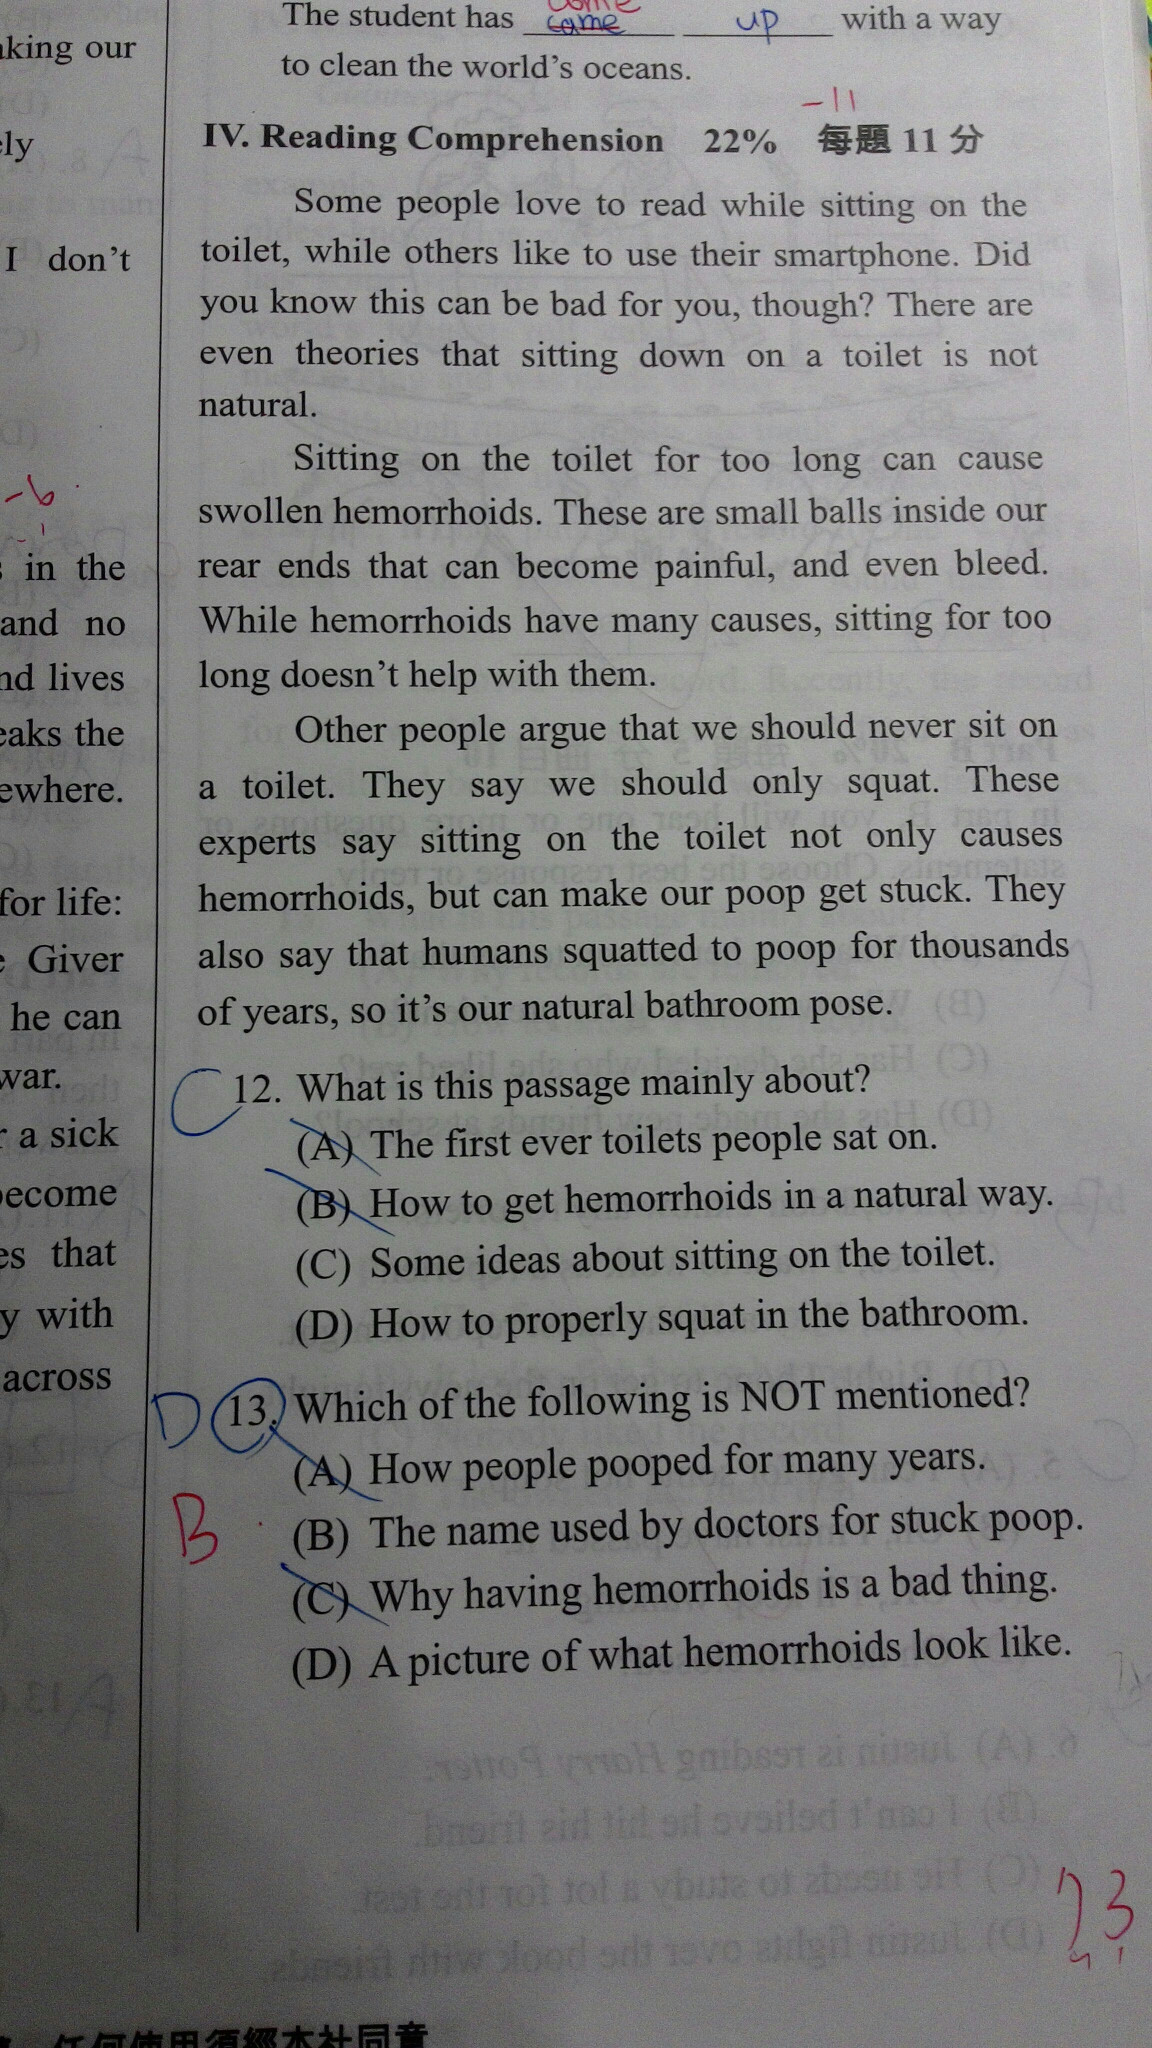 The student has came come up with a way
to clean the world's oceans.
-11
IV. Reading Comprehension 22% 每題 11 分
Some people love to read while sitting on the
toilet, while others like to use their smartphone. Did
you know this can be bad for you, though? There are
even theories that sitting down on a toilet is not
natural.
Sitting on the toilet for too long can cause
swollen hemorrhoids. These are small balls inside our
rear ends that can become painful, and even bleed.
While hemorrhoids have many causes, sitting for too
long doesn't help with them.
Other people argue that we should never sit on
a toilet. They say we should only squat. These
experts say sitting on the toilet not only causes
hemorrhoids, but can make our poop get stuck. They
also say that humans squatted to poop for thousands
of years, so it's our natural bathroom pose.
C 12. What is this passage mainly about?
(A) The first ever toilets people sat on.
(B) How to get hemorrhoids in a natural way.
(C) Some ideas about sitting on the toilet.
(D) How to properly squat in the bathroom.
D 13. Which of the following is NOT mentioned?
(A) How people pooped for many years.
B (B) The name used by doctors for stuck poop.
(C) Why having hemorrhoids is a bad thing.
(D) A picture of what hemorrhoids look like.
73
任何使用須經本社同意
our
I don't
-6
in the
and no
lives
the
for life:
Giver
he can
war.
a sick
become
that
with
across